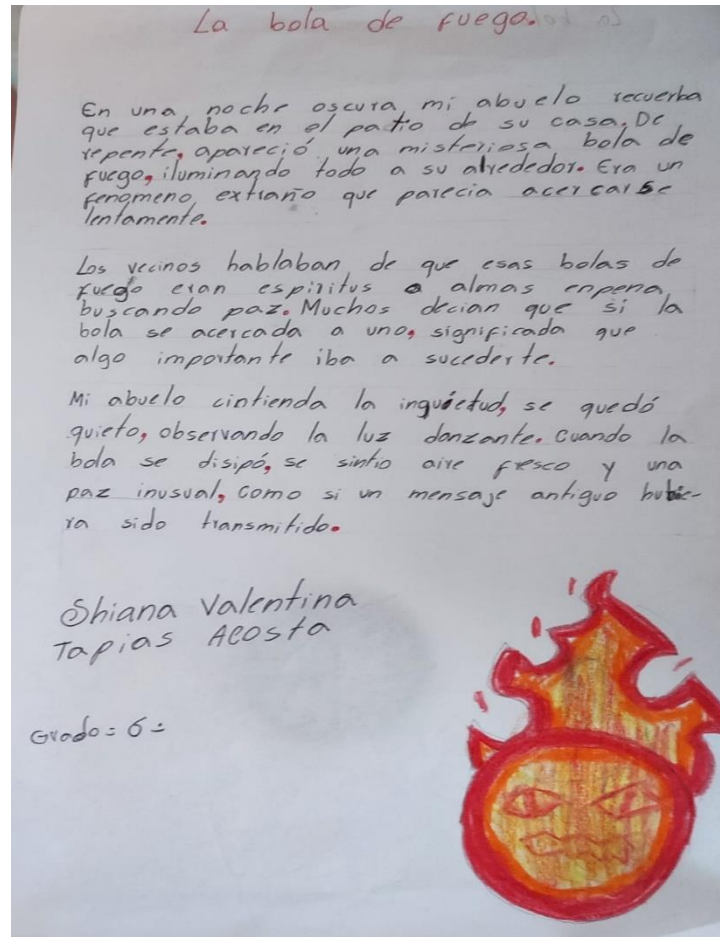 La bola de fuego.
En una noche oscura, mi abuelo recuerba
que estaba en el patio de su casa. De
repente, apareció una misteriosa bola de
fuego, iluminando todo a su alrededor. Era un
fenomeno extraño que parecia acercarse
lentamente.
Los vecinos hablaban de que esas bolas de
fuego eran espiritus o almas enpena
buscando paz. Muchos decian que si la
bola se acercada a uno, significada que
algo importante iba a sucederte.
Mi abuelo cintienda la inquietud, se quedó
quieto, observando la luz danzante. Cuando la
bola se disipó, se sintio aire fresco y una
paz inusual, como si un mensaje antiguo hubie-
ra sido transmitido.
Shiana Valentina
Tapias Acosta
Grado: 6=